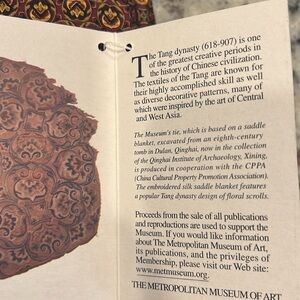 The Tang dynasty (618-907) is one
of the greatest creative periods in
the history of Chinese civilization.
The textiles of the Tang are known for
their highly accomplished skill as well
as diverse decorative patterns, many of
which were inspired by the art of Central
and West Asia.
The Museum's tie, which is based on a saddle
blanket, excavated from an eighth-century
tomb in Dulan, Qinghai, now in the collection
of the Qinghai Institute of Archaeology, Xining,
is produced in cooperation with the CPPA
(China Cultural Property Promotion Association).
The embroidered silk saddle blanket features
a popular Tang dynasty design of floral scrolls.
Proceeds from the sale of all publications
and reproductions are used to support the
Museum. If you would like information
about The Metropolitan Museum of Art,
its publications, and the privileges of
Membership, please visit our Web site:
www.metmuseum.org.
THE METROPOLITAN MUSEUM OF ART